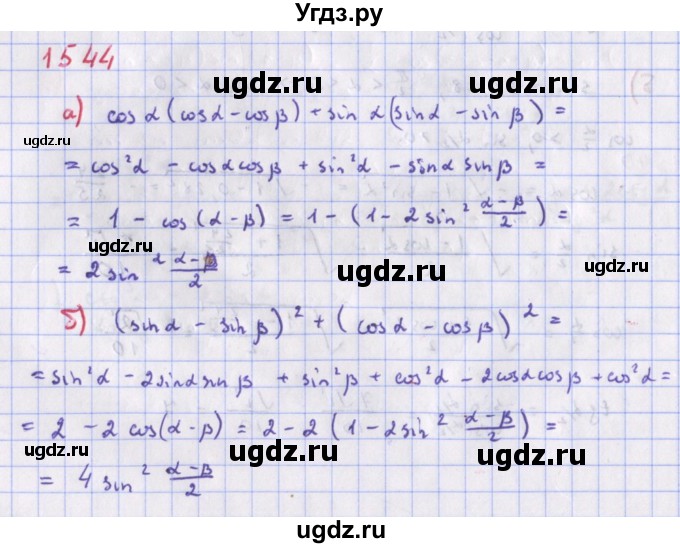 Угдз.ру
1544
ugdz.ru
ugdz.ru
а) cos α (cos α - cos β) + sin α (sin α - sin β) =
ugdz.ru
= cos²α - cos α cos β + sin²α - sin α sin β =
ugdz.ru
= 1 - cos (α - β) = 1 - (1 - 2 sin² (α-β)/2) =
ugdz.ru
= 2 sin² (α-β)/2
ugdz.ru
ugdz.ru
б) (sin α - sin β)² + (cos α - cos β)² =
ugdz.ru
= sin²α - 2 sin α sin β + sin²β + cos²α - 2 cos α cos β + cos²α =
= 2 - 2 cos (α - β) = 2 - 2 (1 - 2 sin² (α-β)/2) =
ugdz.ru
ugdz.ru
= 4 sin² (α-β)/2
ugdz.ru
ugdz.ru